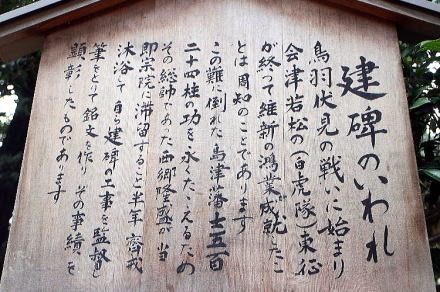 建碑のいわれ
鳥羽伏見の戦いに始まり
会津若松の(白虎隊)東征
が終って維新の鴻業成就したこ
とは周知のことであります
この難に倒れた島津藩士五百
二十四柱の功を永くたゝえるため
その総帥であった西郷隆盛が当
即宗院に滞留すること半年齊戒
沐浴して自ら建碑の工事を監督し
筆をとりて銘文を作り その事績を
顕彰したものであります